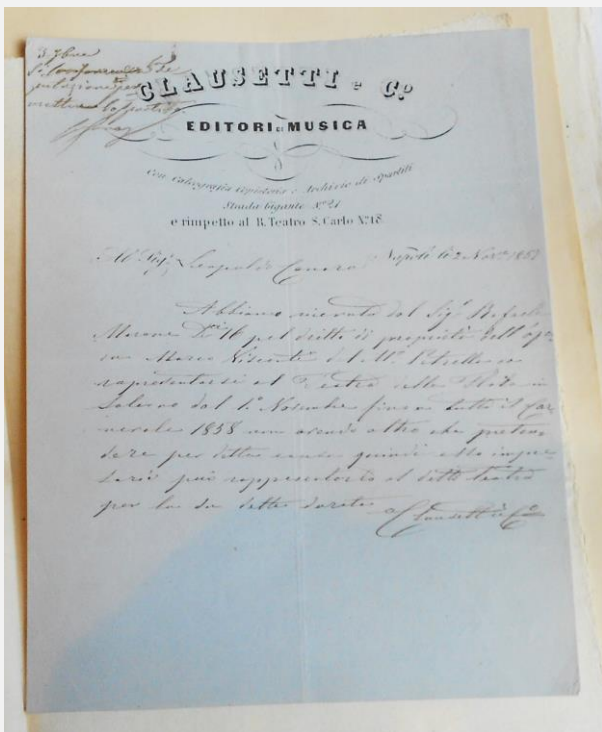 3 9bre
CLAUSETTI e C.º
EDITORI DI MUSICA
Con Calcografia Copisteria e Archivio di Spartiti
Strada Gigante N.º 21
e rimpetto al R. Teatro S. Carlo N.º 18
Al Sig.r Leopoldo Napoli li 2 Nov.e 1857
Abbiamo ricevuto dal Sig.r Rafaele
Marone D.ti 16 pel dritto di proprietà dell'ope
ra Marco Visconti del M.º Petrella da
rapresentarsi al Teatro in
Salerno dal 1.º Novembre fino a tutto il Car
nevale 1858 non avendo altro che preten
dere per detta causa quindi esso impre
sario può rappresentarlo al detto teatro
per la su detta durata Clausetti e C.º